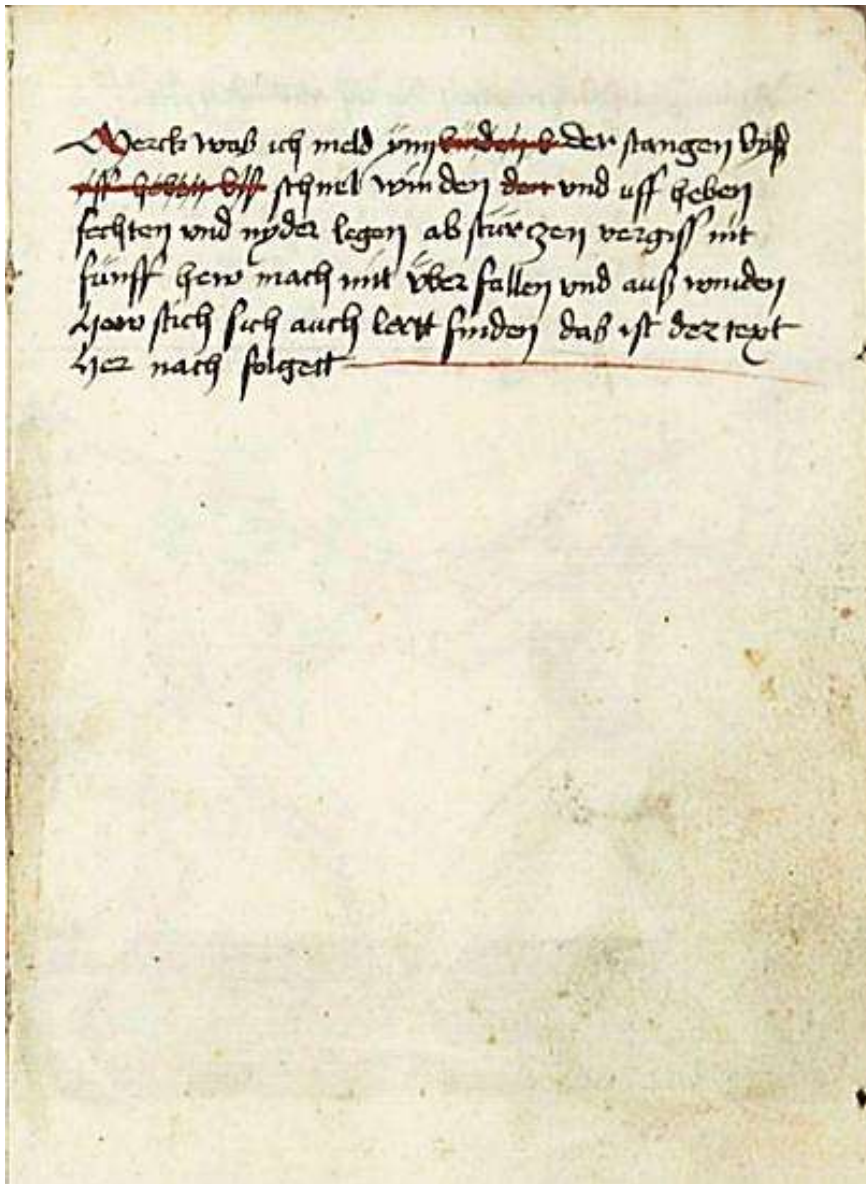 Merck waß ich meld ym der stangen byß
schnel winden und uff heben
fechten vnd nyder legen ab stürczen vergiss nit
fünff hew mach mit über fallen vnd auß winden
How stich sich auch lertt finden daß ist der text
Her nach folgett